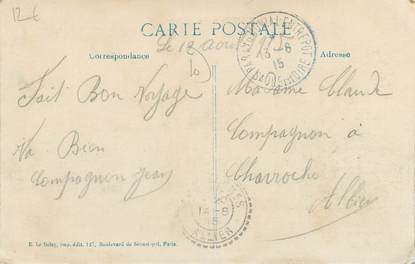 12€
CARTE POSTALE
Correspondance
Adresse
Le 12 aout
13-8
15
SAÔNE-ET-LOIRE
Fait Bon Voyage
Va Bien
Compagnon Jean
Madame Claude
Compagnon à
Charroche
Allier
14-8
15
ALLIER
E. Le Deley, imp.-édit. 127, Boulevard de Sébastopol, Paris.